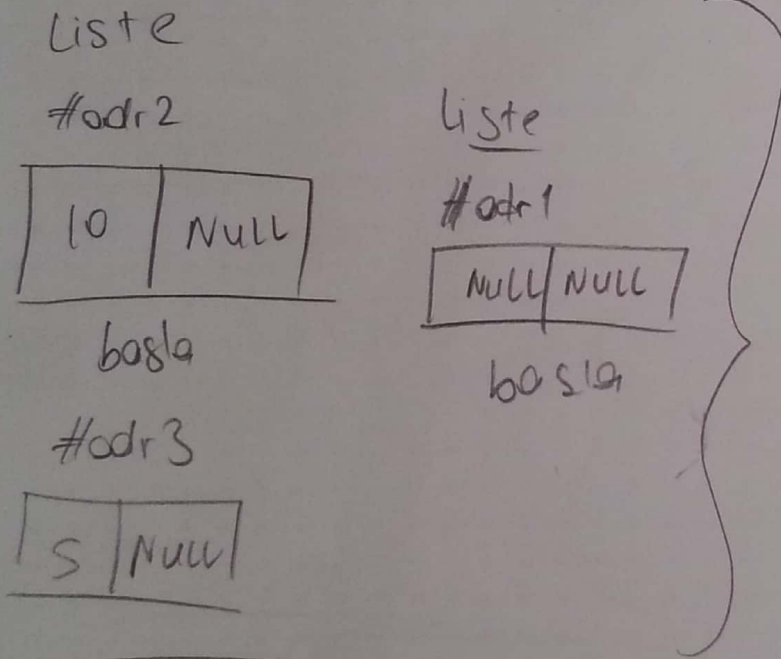 Liste
#adr2
10 NULL
basla
#adr3
5 NULL
Liste
#adr1
NULL NULL
basla